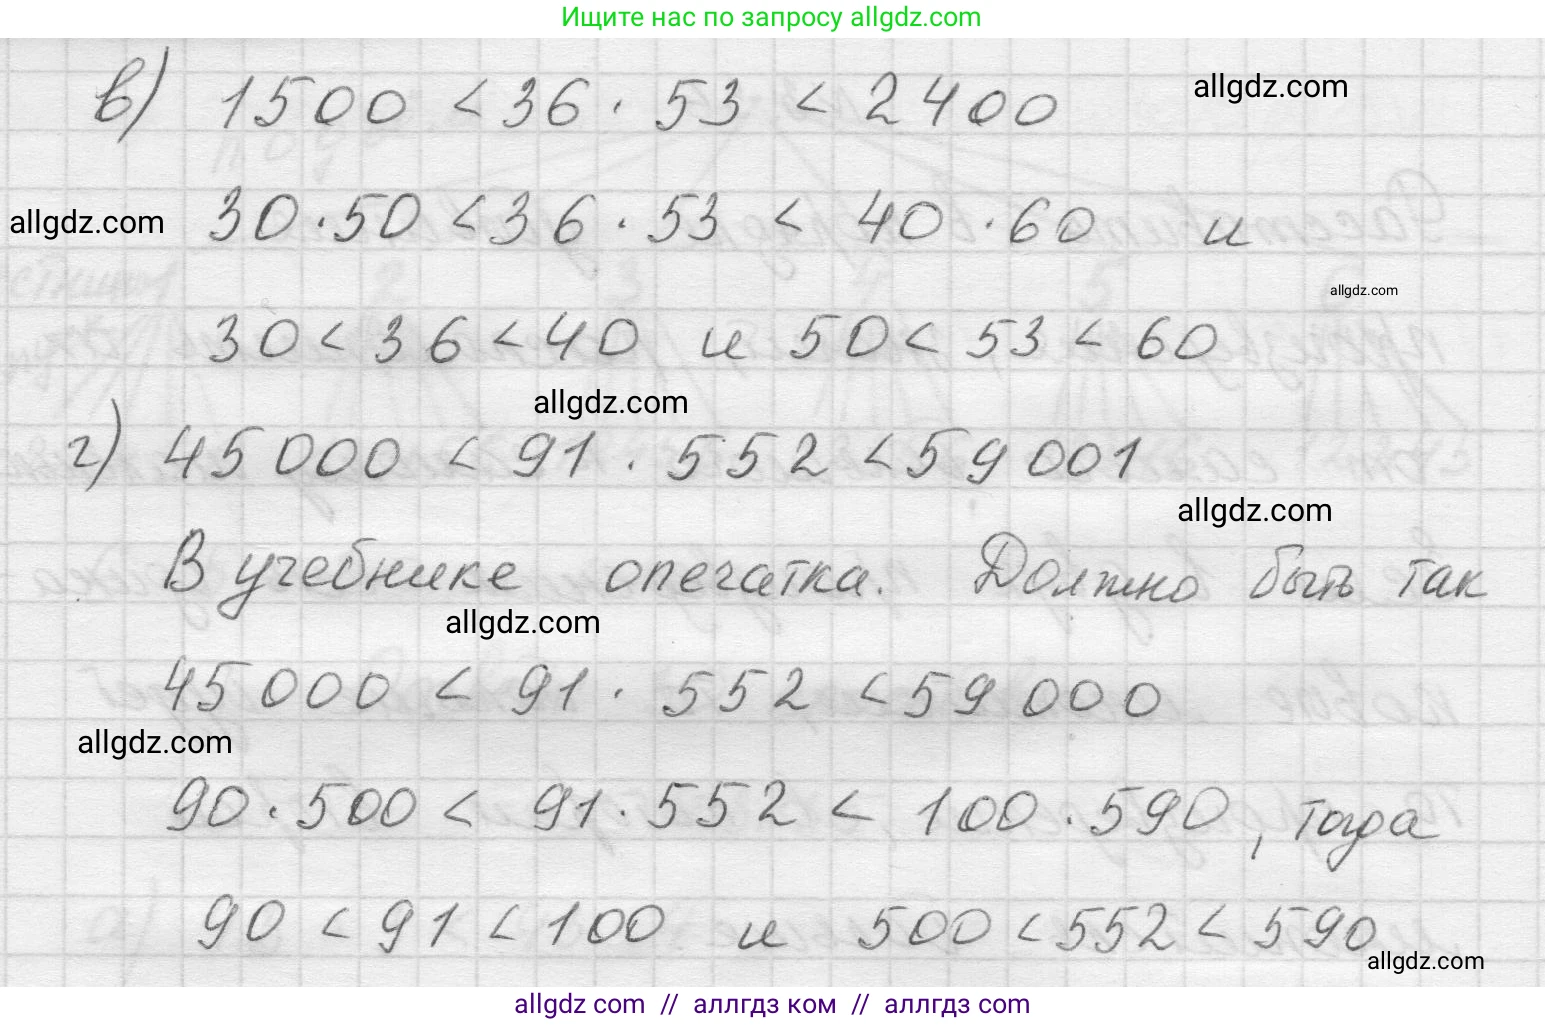 Ищите нас по запросу allgdz.com
в) 1500 < 36 · 53 < 2400
allgdz.com
allgdz.com
30 · 50 < 36 · 53 < 40 · 60 и
allgdz.com
30 < 36 < 40 и 50 < 53 < 60
allgdz.com
г) 45 000 < 91 · 552 < 59 001
allgdz.com
В учебнике опечатка. Должно быть так
allgdz.com
45 000 < 91 · 552 < 59 000
allgdz.com
90 · 500 < 91 · 552 < 100 · 590, тогда
90 < 91 < 100 и 500 < 552 < 590
allgdz.com
allgdz com // аллгдз ком // аллгдз com